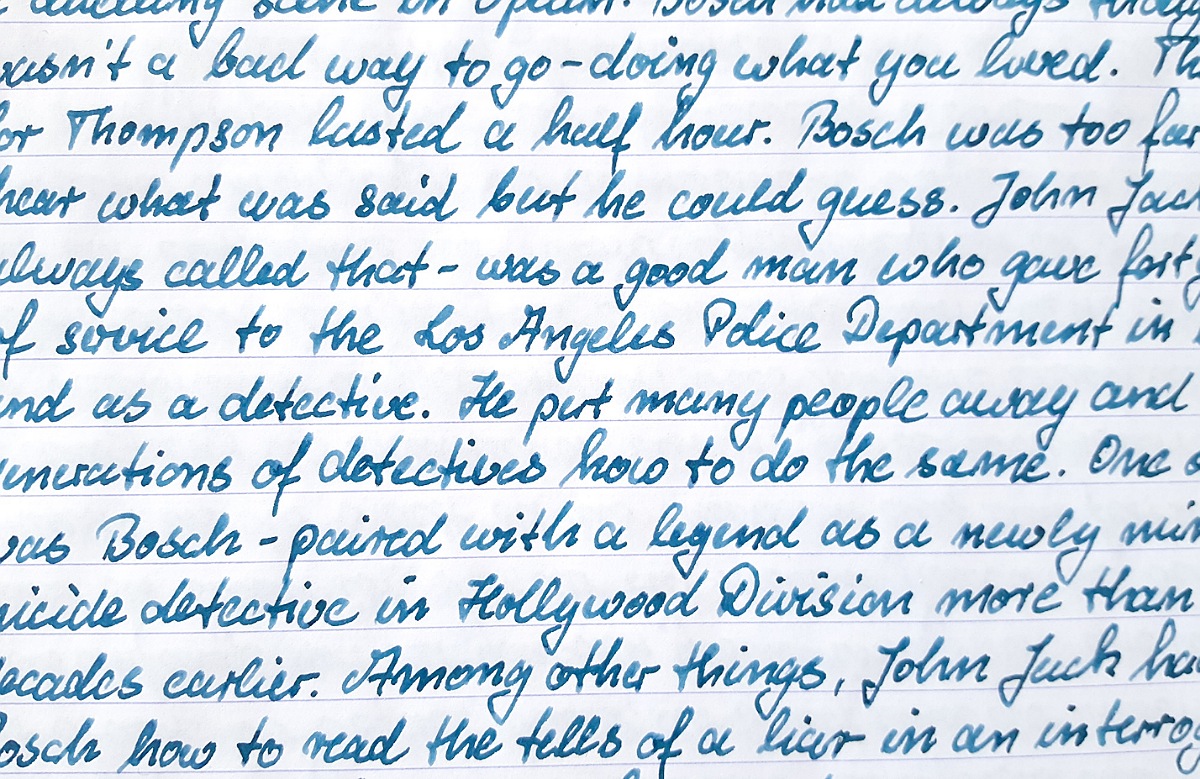 scene in Bosch had always
wasn't a bad way to go - doing what you loved. Th
for Thompson lasted a half hour. Bosch was too far
hear what was said but he could guess. John Jack
always called that - was a good man who gave forty
of service to the Los Angeles Police Department in
and as a detective. He put many people away and
enerations of detectives how to do the same. One
was Bosch - paired with a legend as a newly min
micide detective in Hollywood Division more than
decades earlier. Among other things, John Jack ha
Bosch how to read the tells of a liar in an interrog